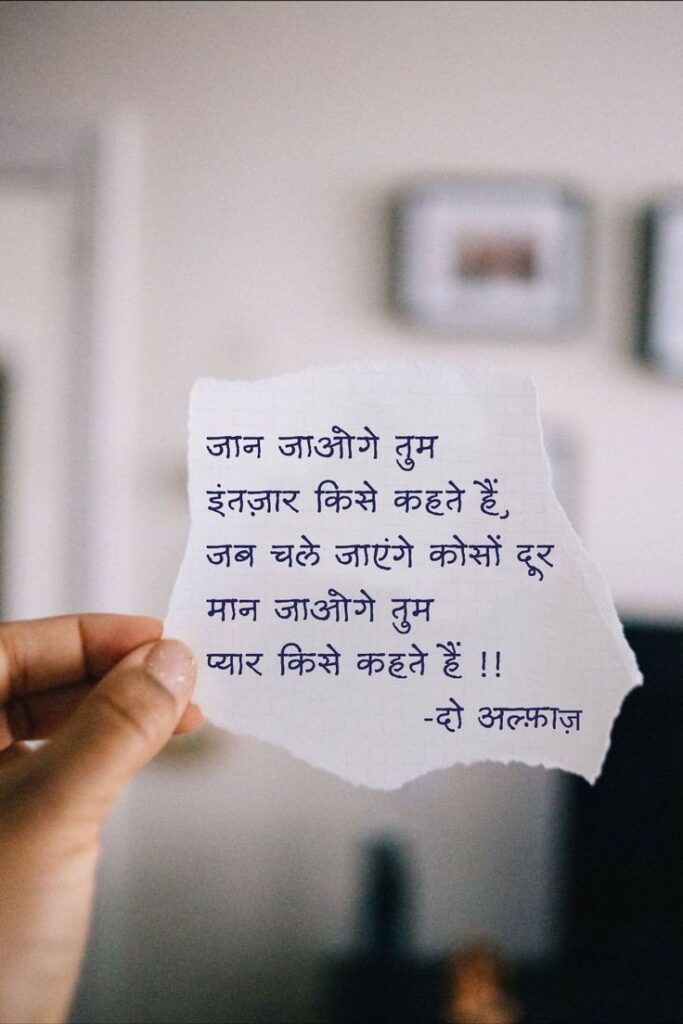 जान जाओगे तुम
इंतज़ार किसे कहते हैं,
जब चले जाएंगे कोसों दूर
मान जाओगे तुम
प्यार किसे कहते हैं !!
-दो अल्फ़ाज़